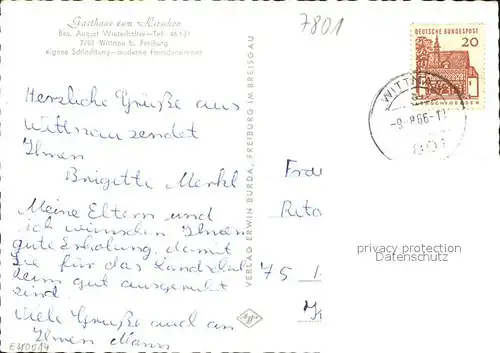 Gasthaus zum Hirschen
Bes. August Winterhalter - Tel.
7801 Wittnau b. Freiburg
eigene Schlachtung - moderne Fremdenzimmer
7801
DEUTSCHE BUNDESPOST
20
WITTNAU
-8.66-11
801
Herzliche Grüße aus
Wittnau sendet
Ihnen
Brigitte Merkl
Meine Eltern und
ich wünschen Ihnen
gute Erholung, damit
Sie für das
gut ausgeruht
sind.
Viele Grüße auch an
Ihren Mann
VERLAG ERWIN BURDA, FREIBURG IM BREISGAU
Rita
75
privacy protection
Datenschutz